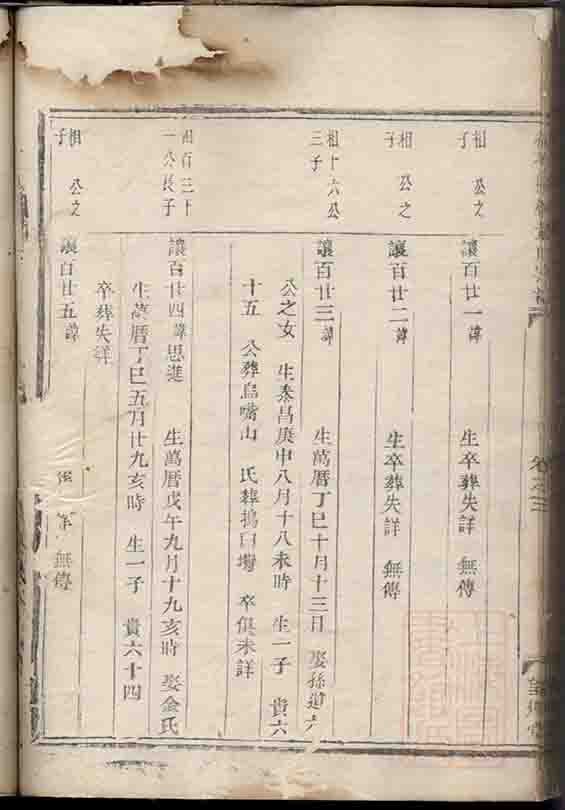 相 公之
子
讓百廿一諱 生卒葬失詳 無傳
相 公之
子
讓百廿二諱 生卒葬失詳 無傳
相十六公
三子
讓百廿三諱 生萬曆丁巳十月十三日 娶孫道六
公之女 生泰昌庚申八月十八未時 生一子 貴六
十五 公葬烏嘴山 氏葬搗臼灣 卒俱未詳
相百三十
一公長子
讓百廿四諱思進 生萬曆戊午九月十九亥時 娶金氏
生萬曆丁巳五月廿九亥時 生一子 貴六十四
卒葬失詳
相 公之
子
讓百廿五諱 無傳
卷之三